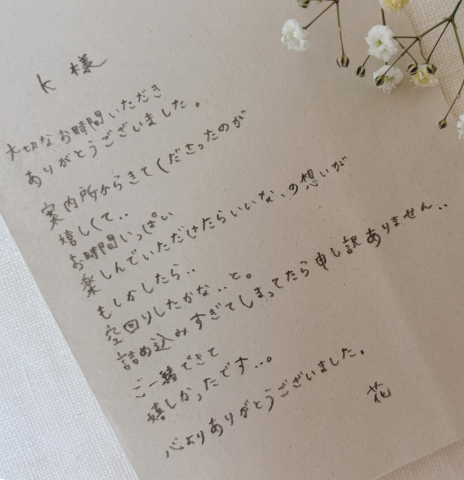 K 様
大切なお時間いただき
ありがとうございました。
案内所からきてくださったのが
嬉しくて..
お時間いっぱい
楽しんでいただけたらいいな、の想いが
もしかしたら..
空回りしたかな..と。
詰め込みすぎてしまってたら申し訳ありません..
ご一緒できて
嬉しかったです..。
心よりありがとうございました。
花